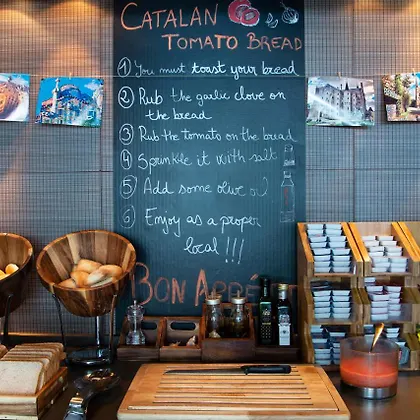 CATALAN
TOMATO BREAD
1 You must toast your bread
2 Rub the garlic clove on
the bread
3 Rub the tomato on the bread
4 Sprinkle it with salt
5 Add some olive oil
6 Enjoy as a proper
local!!!
BON APPÉ